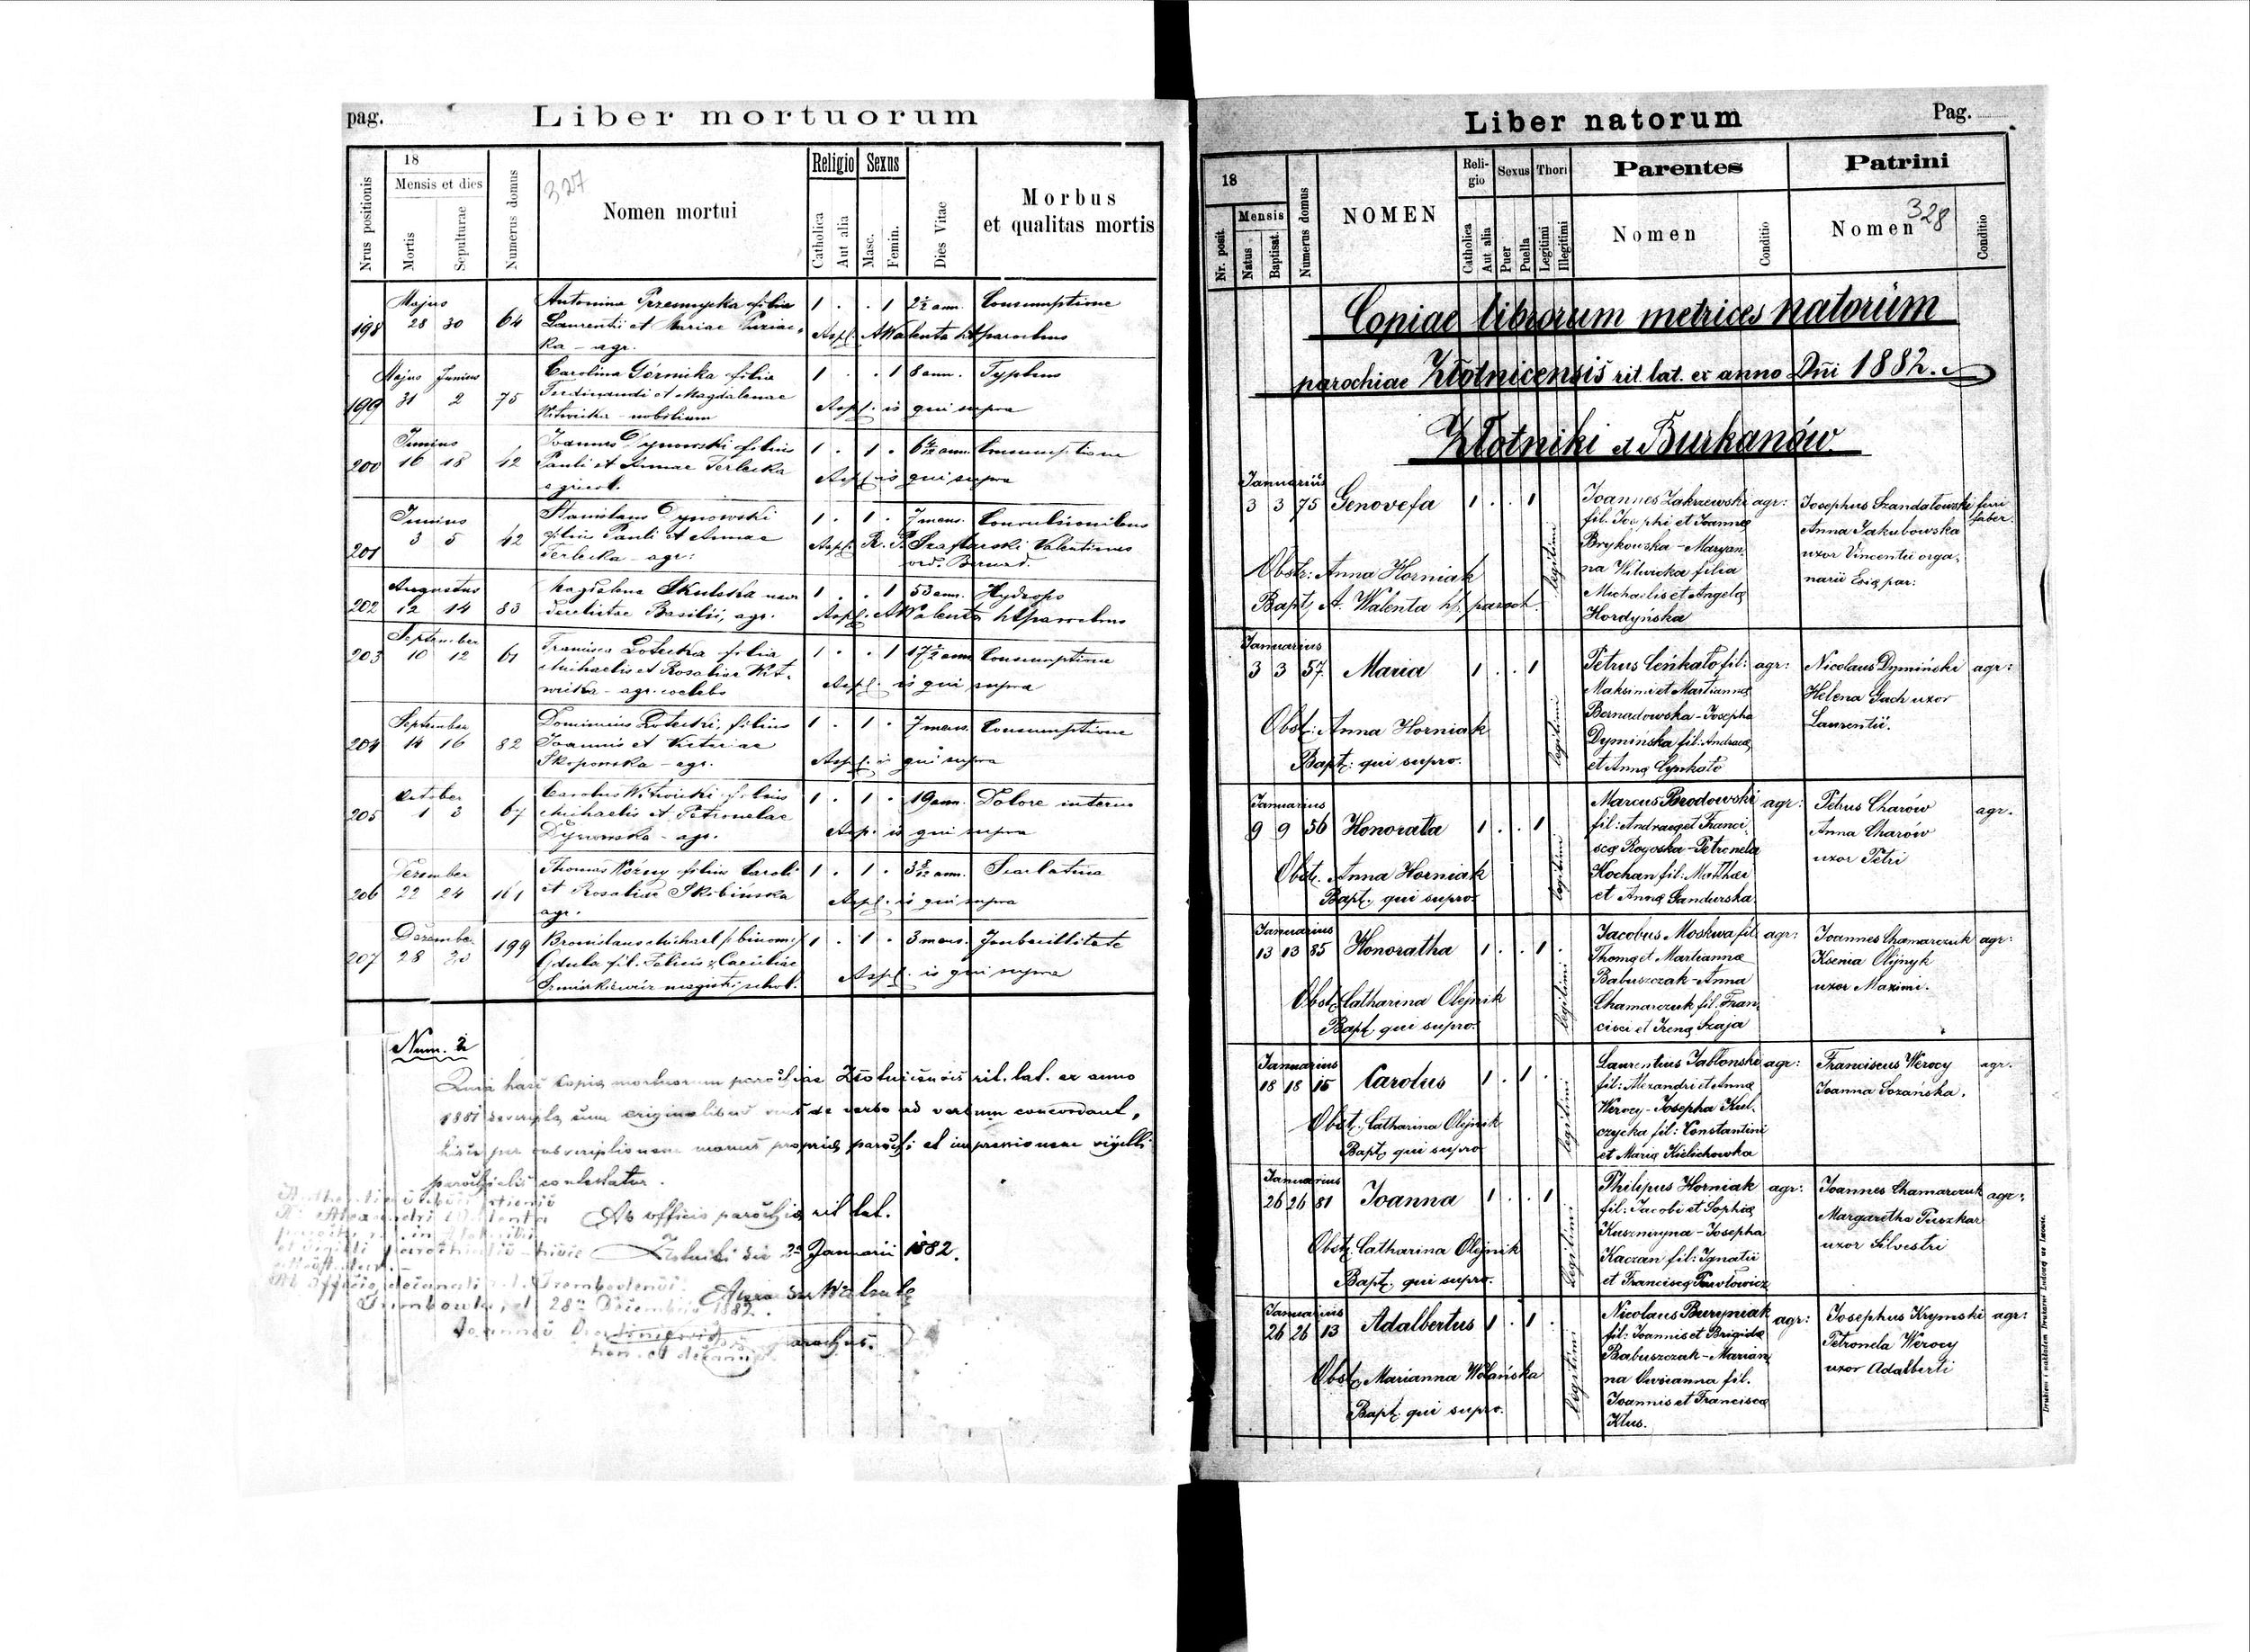 pag.
Liber mortuorum
Nrus positionis
18
Mensis et dies
Mortis
Sepulturae
Numerus domus
327
Nomen mortui
Religio
Catholica
Aut alia
Sexus
Masc.
Femin.
Dies Vitae
Morbus
et qualitas mortis
Majus
198 28 30 64
Antonina Przemycka filia
Laurentii et Mariae
ka - agr.
1 . . 1 2½ ann. Consumptione
Asp. A Walenta parochus
Majus Junius
199 31 2 75
Carolina Górnicka filia
Ferdinandi et Magdalenae
Witwicka - nobilium
1 . . 1 8 ann. Typhus
Asp. is qui supra
Junius
200 16 18 42
Joannes Dynowski filius
Pauli et Annae Terlecka
agricol.
1 . 1 . ann. Consumptione
Asp. is qui supra
Junius
201 3 5 42
Stanislaus Dynowski
filius Pauli et Annae
Terlecka - agr:
1 . 1 . 7 mens. Convulsionibus
Asp. R. P. Szaflarski Valentinus
ord. Bernard.
Augustus
202 12 14 83
Magdalena Skulska
Basilii, agr.
1 . . 1 53 ann. Hydrops
Asp. A Walenta parochus
September
203 10 12 61
Francisca filia
Michaelis et Rosaliae Wit-
wicka - agr. coelebs
1 . . 1 17½ ann Consumptione
Asp. is qui supra
September
204 14 16 82
Dominicus filius
Joannis et Victoriae
Skoponska - agr.
1 . 1 . 7 mens. Consumptione
Asp. is qui supra
October
205 1 3 67
Carolus Witwicki filius
Michaelis et Petronelae
Dynowska - agr.
1 . 1 . 19 ann. Dolore interno
Asp. is qui supra
Dezember
206 22 24 161
Thomas Woźny filius Caroli
et Rosaliae Skibińska
agr.
1 . 1 . ann. Scarlatina
Asp. is qui supra
Dezember
207 28 30 199
Bronislaus Michael /binom:/
Gdula fil. Felicis & Caeciliae
magistri schol.
1 . 1 . 3 mens. Imbecillitate
Asp. is qui supra
Num. 2
haec copia mortuorum parochiae Złotnicensis rit. lat. ex anno
1881 cum originalibus de verbo ad verbum concordant,
per subscriptionem manus propriae parochi et impressionem sigilli
parochialis contestatur.
Ab officio parochiae rit lat.
2 Januarii 1882.
Walenta
parochus.
28 Decembris 1882.
Liber natorum
Pag.
Nr. posit.
18
Mensis
Natus
Baptisat.
Numerus domus
NOMEN
Religio
Catholica
Aut alia
Sexus
Puer
Puella
Thori
Legitimi
Illegitimi
Parentes
Nomen
Conditio
Patrini
Nomen
328
Conditio
Copiae librorum metrices natorum
parochiae Złotnicensis rit. lat. ex anno Dni 1882.
Złotniki et Burkanów.
Januarius
3 3 75 Genovefa 1 . . 1 legitimi
Obstr: Anna Horniak
Bapt. A. Walenta paroch.
Joannes Zakrzewski agr:
fil. Josephi et Joannae
Brykowska - Maryan-
na Witwicka filia
Michaelis et Angelae
Hordyńska
Josephus Szandałowski ferri
faber.
Anna Jakubowska
uxor Vincentii orga-
narii par:
Januarius
3 3 57. Maria 1 . . 1 legitimi
Obst: Anna Horniak
Bapt: qui supra.
Petrus Ceńkało fil: agr:
Maksimi et Martianna
Bernadowska - Josepha
Dymińska fil: Andreae
et Anna Cynkało
Nicolaus Dymiński agr:
Helena Gach uxor
Laurentii.
Januarius
9 9 56 Honorata 1 . . 1 legitimi
Obst. Anna Horniak
Bapt. qui supra.
Marcus Brodowski agr:
fil: Andreae et Franci-
scae Rogoska - Petronela
Kochan fil: Matthaei
et Anna Gandurska.
Petrus Charów agr.
Anna Charów
uxor Petri
Januarius
13 13 85 Honoratha 1 . . 1 legitimi
Obst. Catharina Olejnik
Bapt. qui supra.
Jacobus Moskwa fil agr:
Thomae et Martianna
Babuszczak - Anna
Chamarczuk fil. Fran-
cisci et Irena Szaja
Joannes Chamarczuk agr:
Ksenia Olijnyk
uxor Maximi.
Januarius
18 18 15 Carolus 1 . 1 . legitimi
Obst. Catharina Olejnik
Bapt. qui supra
Laurentius Jabłonski agr:
fil: Alexandri et Anna
Werocy - Josepha Kul-
czycka fil: Constantini
et Maria Kielichowka
Franciscus Werocy agr.
Joanna Sozańska.
Januarius
26 26 81 Joanna 1 . . 1 legitimi
Obst. Catharina Olejnik
Bapt. qui supra.
Philipus Horniak agr:
fil: Jacobi et Sophia
Kuszniryna - Josepha
Kaczan fil: Ignatii
et Francisca Pawłowicz
Joannes Chamarczuk agr:
Margaretha Puszkar
uxor Silvestri
Januarius
26 26 13 Adalbertus 1 . 1 . legitimi
Obst. Marianna Wolańska
Bapt. qui supra.
Nicolaus Buryniak agr:
fil: Joannis et Brigida
Babuszczak - Marian-
na fil.
Joannis et Francisca
Klus.
Josephus Krymski agr:
Petronela Werocy
uxor Adalberti